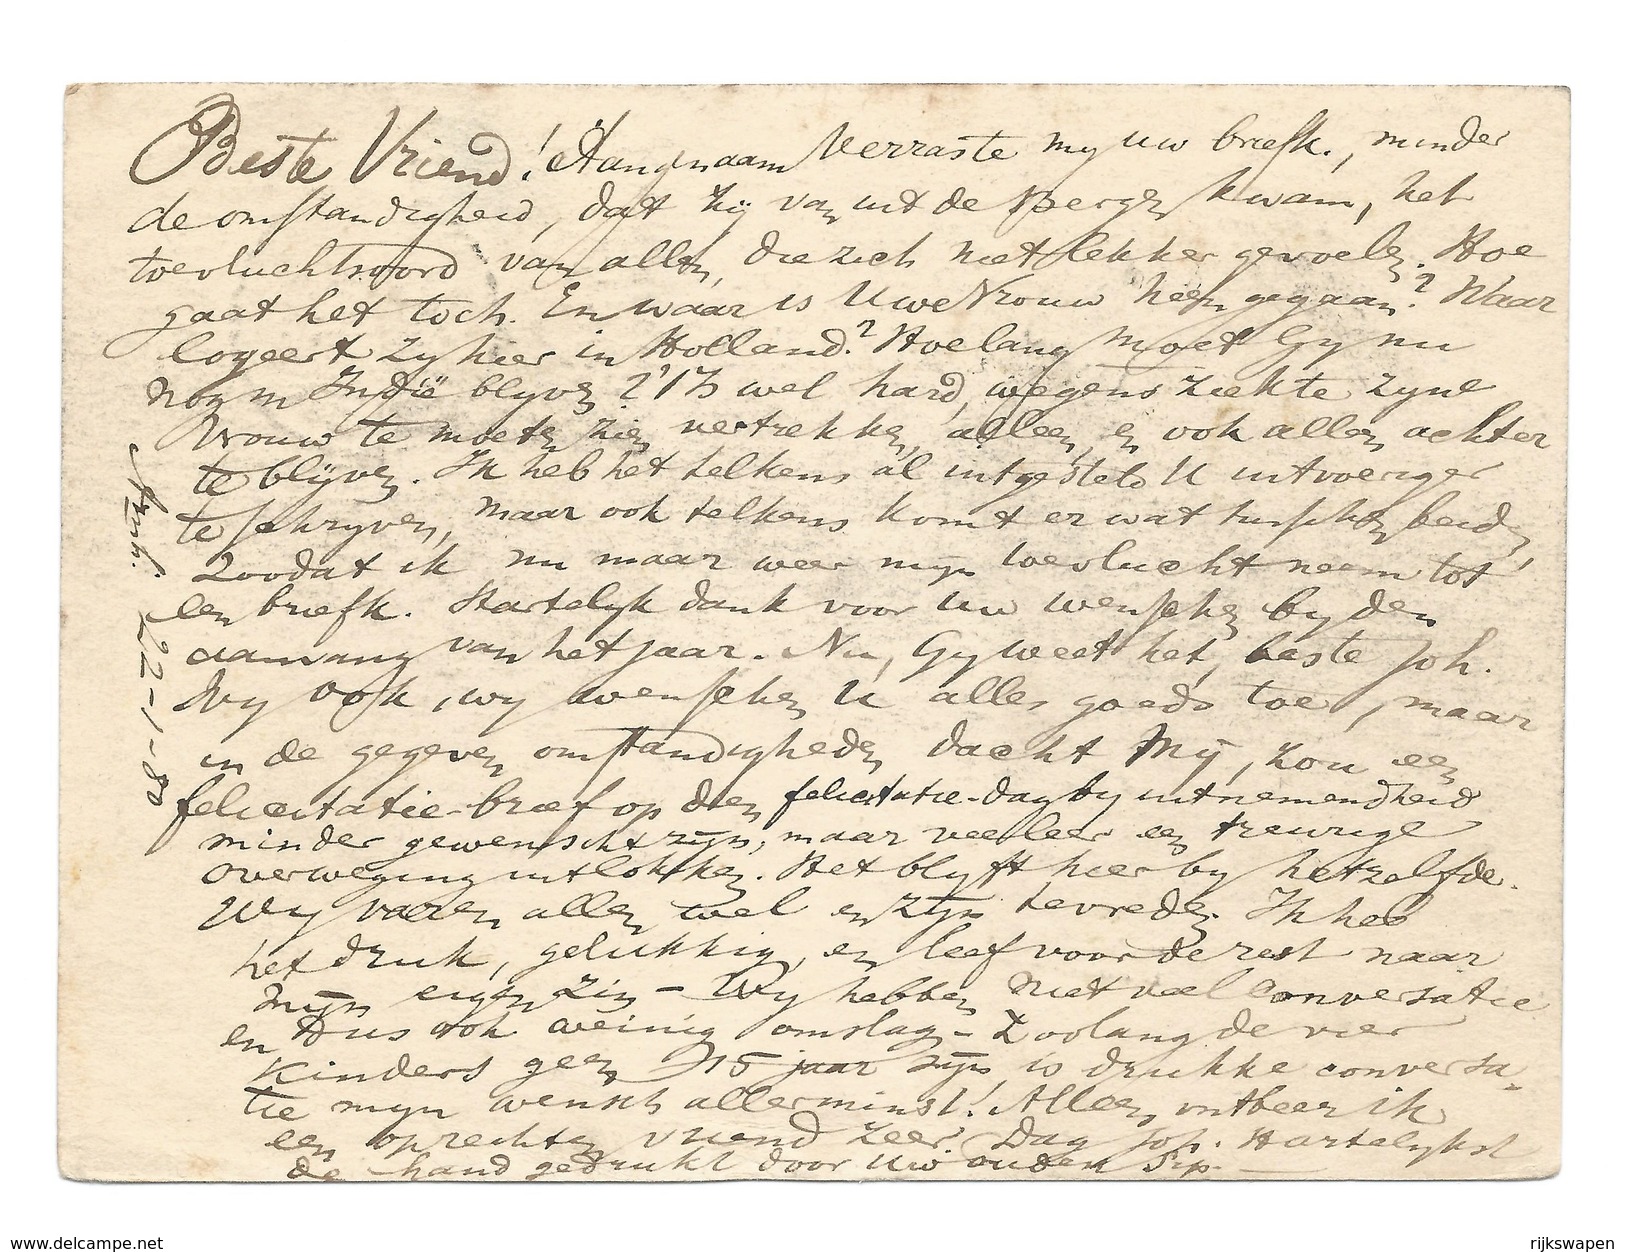 Beste Vriend! Aangenaam verraste my uw briefk., minder
de omstandigheid, dat hij van uit de Bergen kwam, het
toevluchtsoord van allen, die zich niet lekker gevoelen. Hoe
gaat het toch. En waar is Uwe Vrouw heen gegaan? Waar
logeert zy hier in Holland? Hoelang moet Gy nu
nog in Indië blyven? 't Is wel hard, wegens ziekte zyne
Vrouw te moeten zien vertrekken, alleen, en ook alleen achter
te blijven. Ik heb het telkens al uitgesteld U uitvoeriger
te schryven, maar ook telkens komt er wat tusschen beide,
zoodat ik nu maar weer mijn toevlucht neem tot
een briefk. Hartelyk dank voor uw wenschen by den
aanvang van het jaar. Nu, Gy weet het, beste Joh.
Wy ook, wy wenschen U alles goeds toe, maar
in de gegeven omstandigheden dacht Mij, zou een
felicitatie-brief op dien felicitatie-dag by uitnemendheid
minder gewenscht zijn, maar veeleer een treurige
overweging uitlokken. Het blyft hier by hetzelfde.
Wy varen allen wel en zijn tevreden. Ik heb
het druk, gelukkig, en leef voor de rest naar
mijn eigen zin – Wy hebben niet veel conversatie
en dus ook weinig omslag – Zoolang de vier
kinders geen 15 jaar zijn, is drukke conversa-
tie mijn wensch allerminst! Alleen, ontbeer ik
een oprechten vriend zeer. Dag Joh. Hartelykst
de hand gedrukt door uw ouden Sip.
Arnh. 22-1-80
www.delcampe.net
rijkswapen